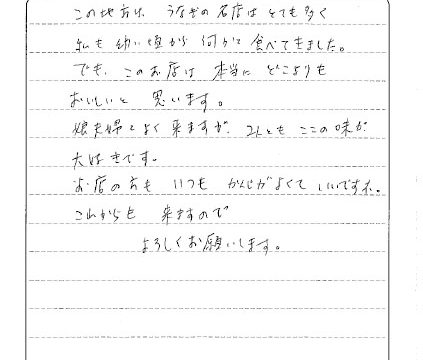 この地方は、うなぎの名店はとても多く
私も幼い頃から何かと食べてきました。
でも、このお店は本当にどこよりも
おいしいと思います。
娘夫婦とよく来ますが、みんなここの味が
大好きです。
お店の方もいつもかんじがよくていいですネ。
これからも来ますので
よろしくお願いします。